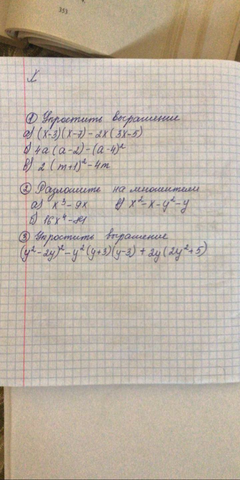 X
① Упростить выражение
а) (x-3)(x-7)-2x(3x-5)
б) 4a(a-2)-(a-4)²
в) 2(m+1)²-4m
② Разложить на множители
а) x³-9x в) x²-x-y²-y
б) 16x⁴-81
③ Упростить выражение
(y²-2y)²-y²(y+3)(y-3)+2y(2y²+5)